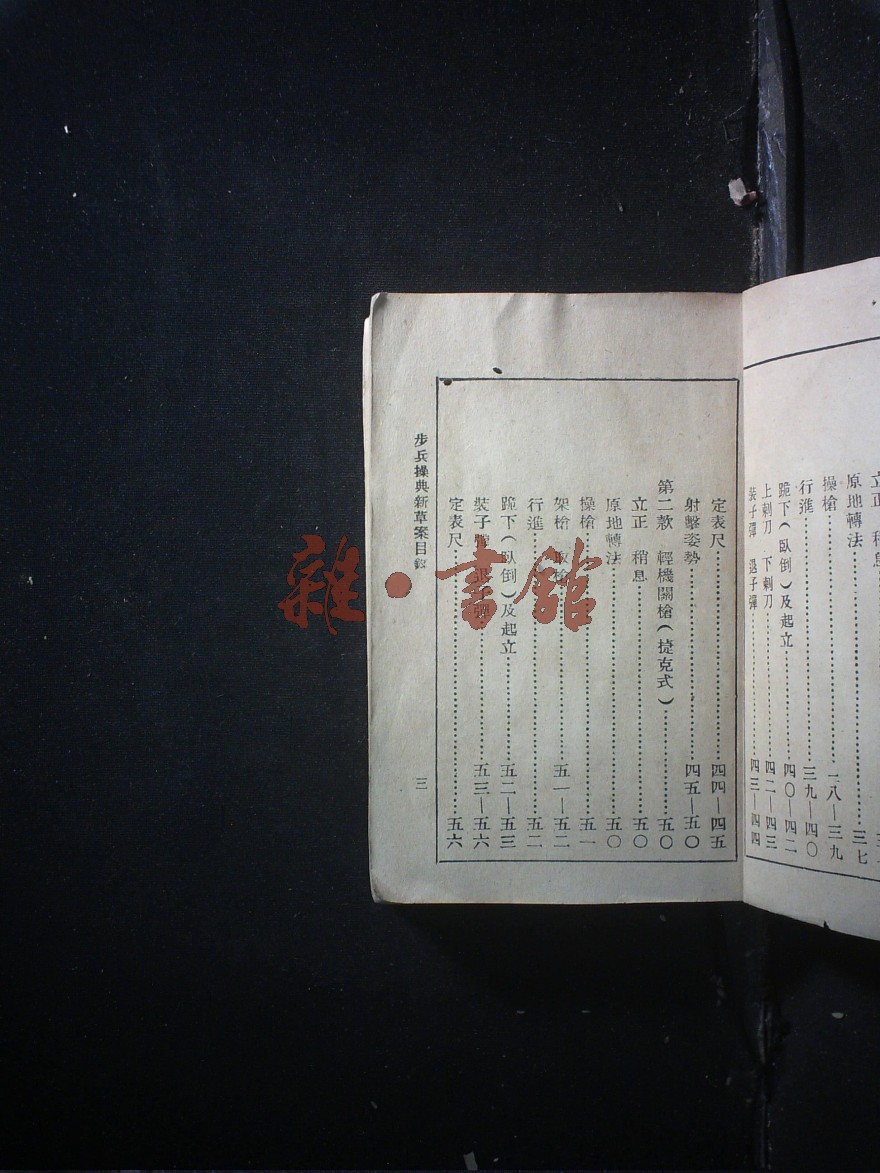 原地轉法……三七
操槍……三八—三九
行進……三九—四〇
跪下(臥倒)及起立……四〇—四二
上刺刀　下刺刀……四二—四三
裝子彈　退子彈……四三—四四
定表尺……四四—四五
射擊姿勢……四五—五〇
第二款　輕機關槍(捷克式)……五〇
立正　稍息……五〇
原地轉法……五〇
操槍……五一
架槍　取槍……五一—五二
行進……五二
跪下(臥倒)及起立……五二—五三
裝子彈　退子彈……五三—五六
定表尺……五六
步兵操典新草案目錄
三
雜·書館